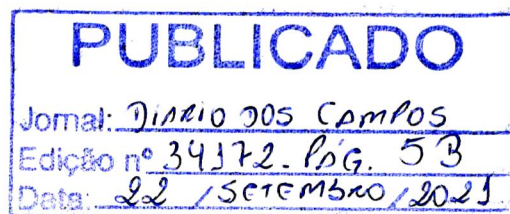 PUBLICADO
Jornal: DIARIO DOS CAMPOS
Edição nº 34172. PÁG. 5B
Data: 22 / SETEMBRO / 2021